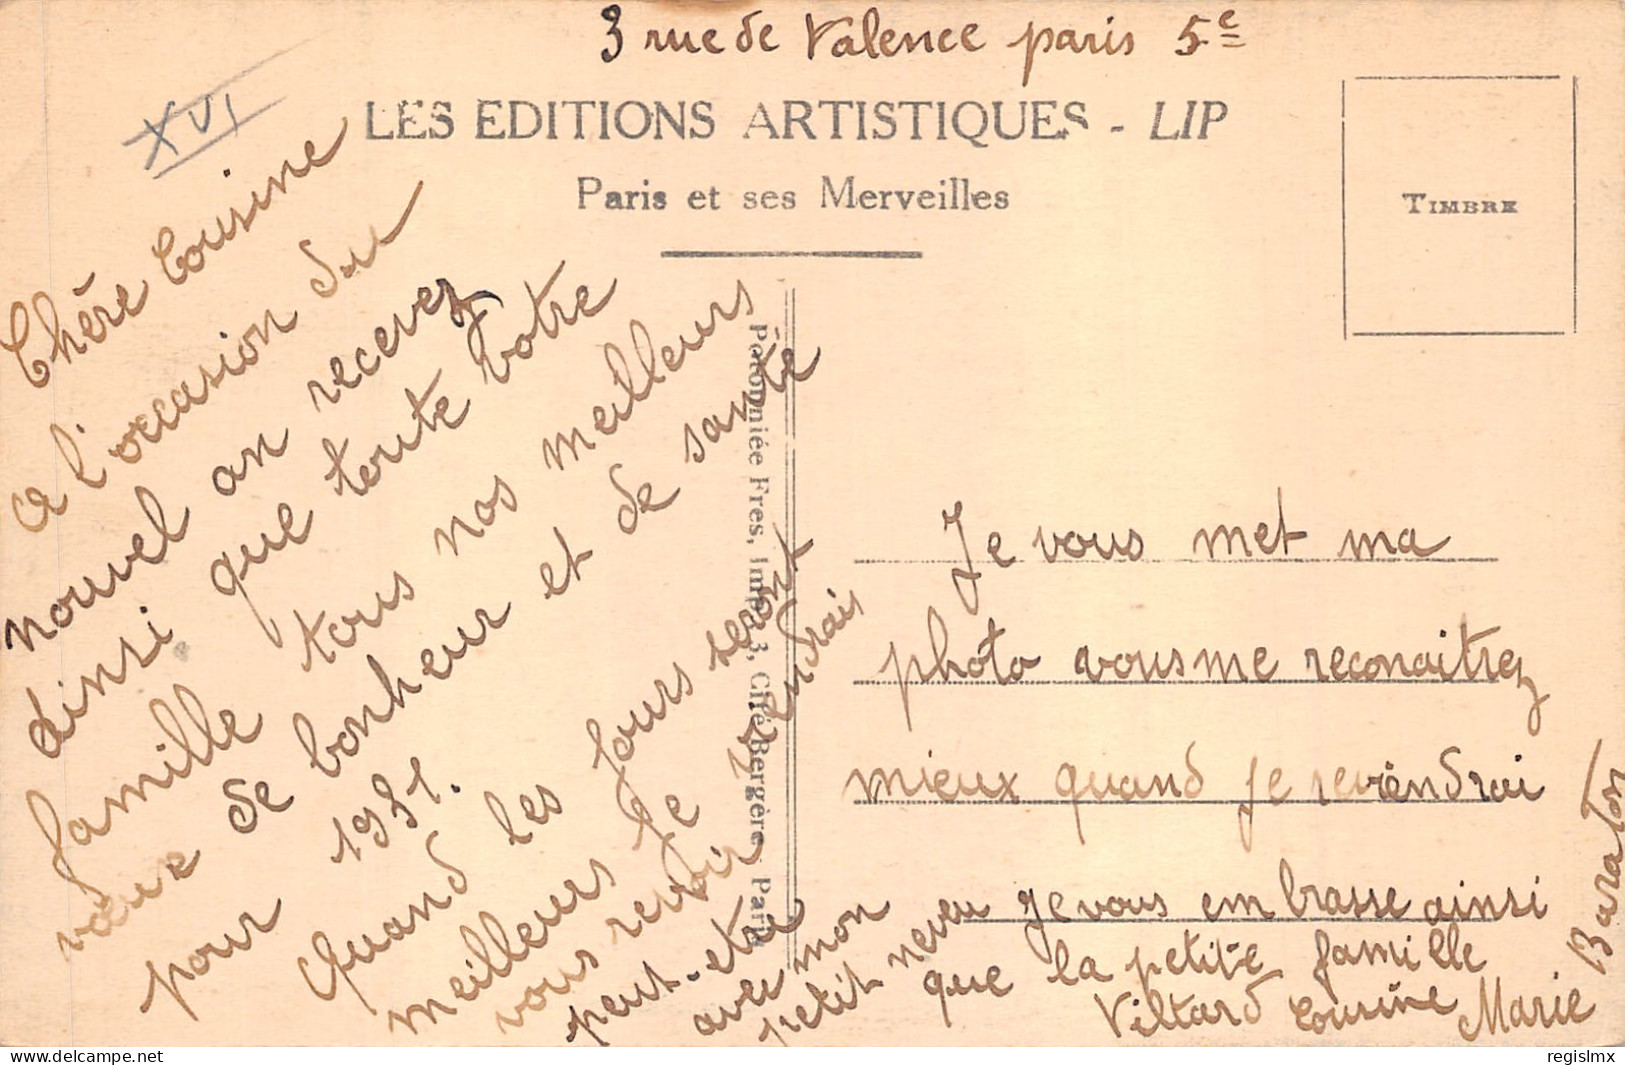 3 rue de Valence paris 5e
XVI
LES EDITIONS ARTISTIQUES - LIP
Paris et ses Merveilles
TIMBRE
Chère Cousine
a l'occasion du
nouvel an recevez
ainsi que toute votre
famille tous nos meilleurs
vœux de bonheur et de santé
pour 1931.
Quand les jours seront
meilleurs je viendrais
vous revoir
peut-etre
avec mon
petit neveu
Patonniée Fres, Imp. 3, Cité Bergère - Paris
Je vous met ma
photo vous me reconaitrez
mieux quand je reviendrai
je vous embrasse ainsi
que la petite famille
Viltard Cousine Marie
Baraton
regislmx
www.delcampe.net